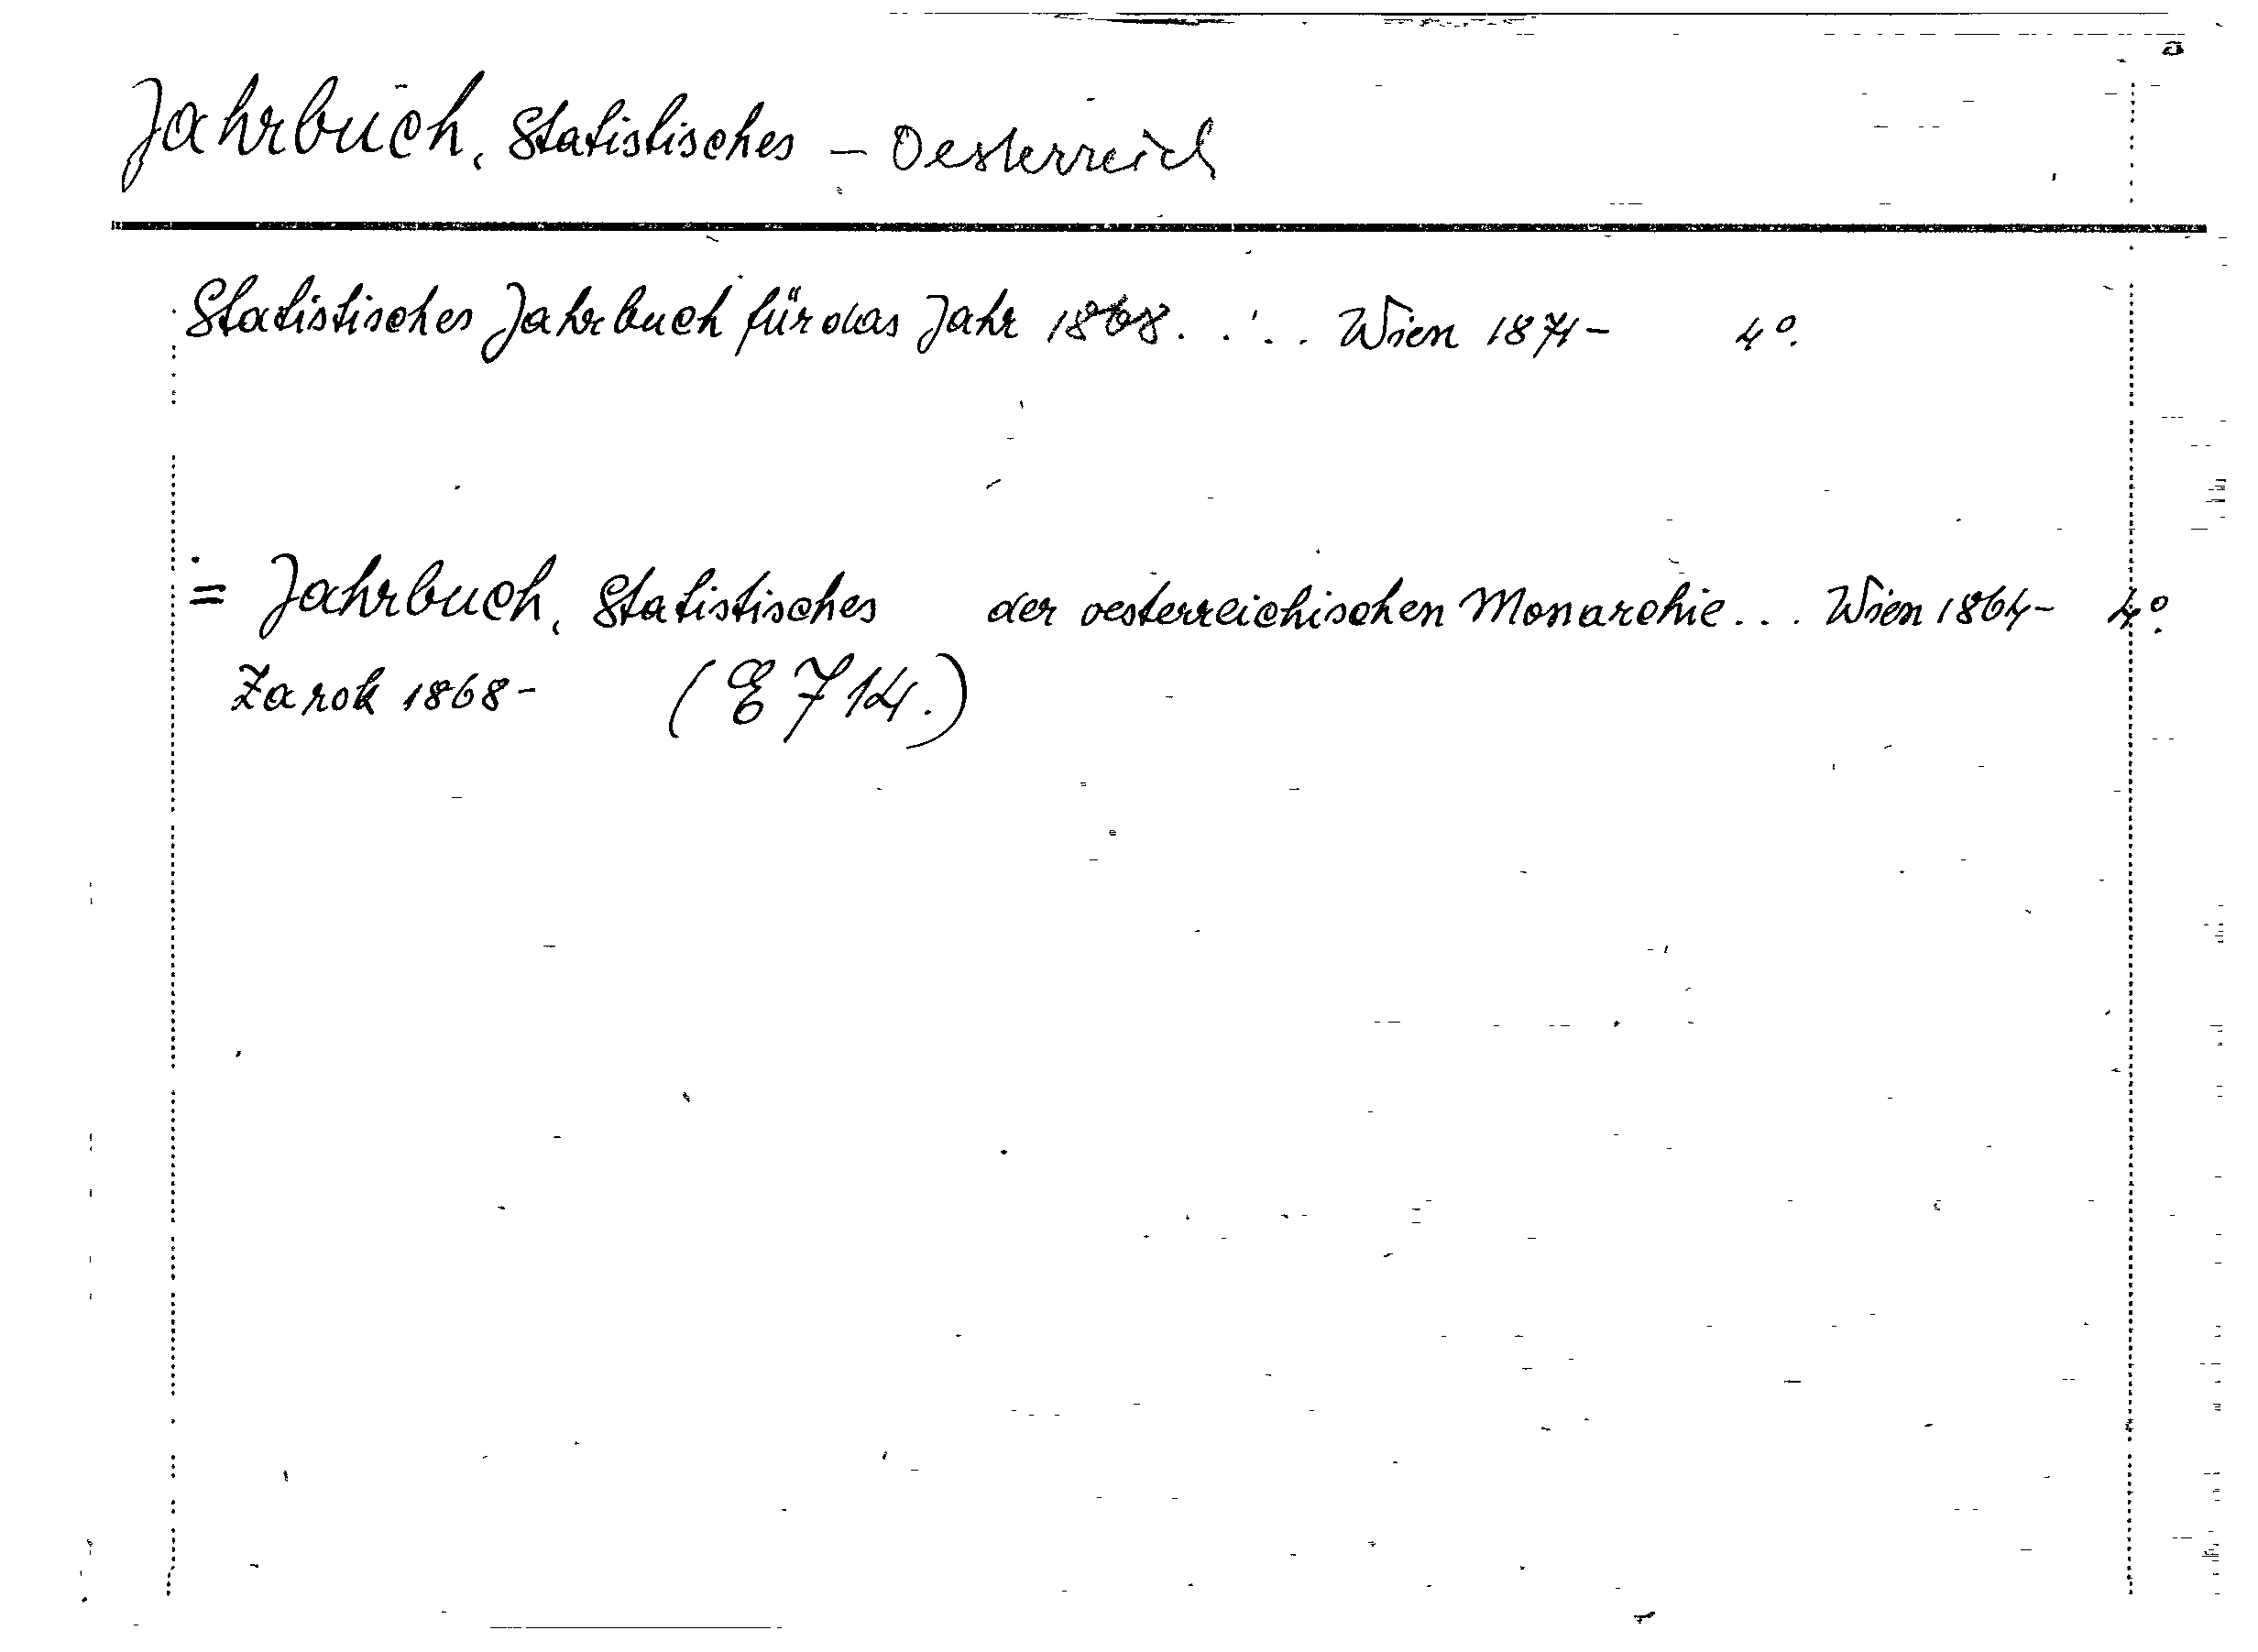 Jahrbuch, Statistisches – Oesterreich
Statistisches Jahrbuch für das Jahr 1868.... Wien 1871- 4°.
= Jahrbuch, Statistisches der oesterreichischen Monarchie... Wien 1864- 4°.
Za rok 1868- (E 714.)